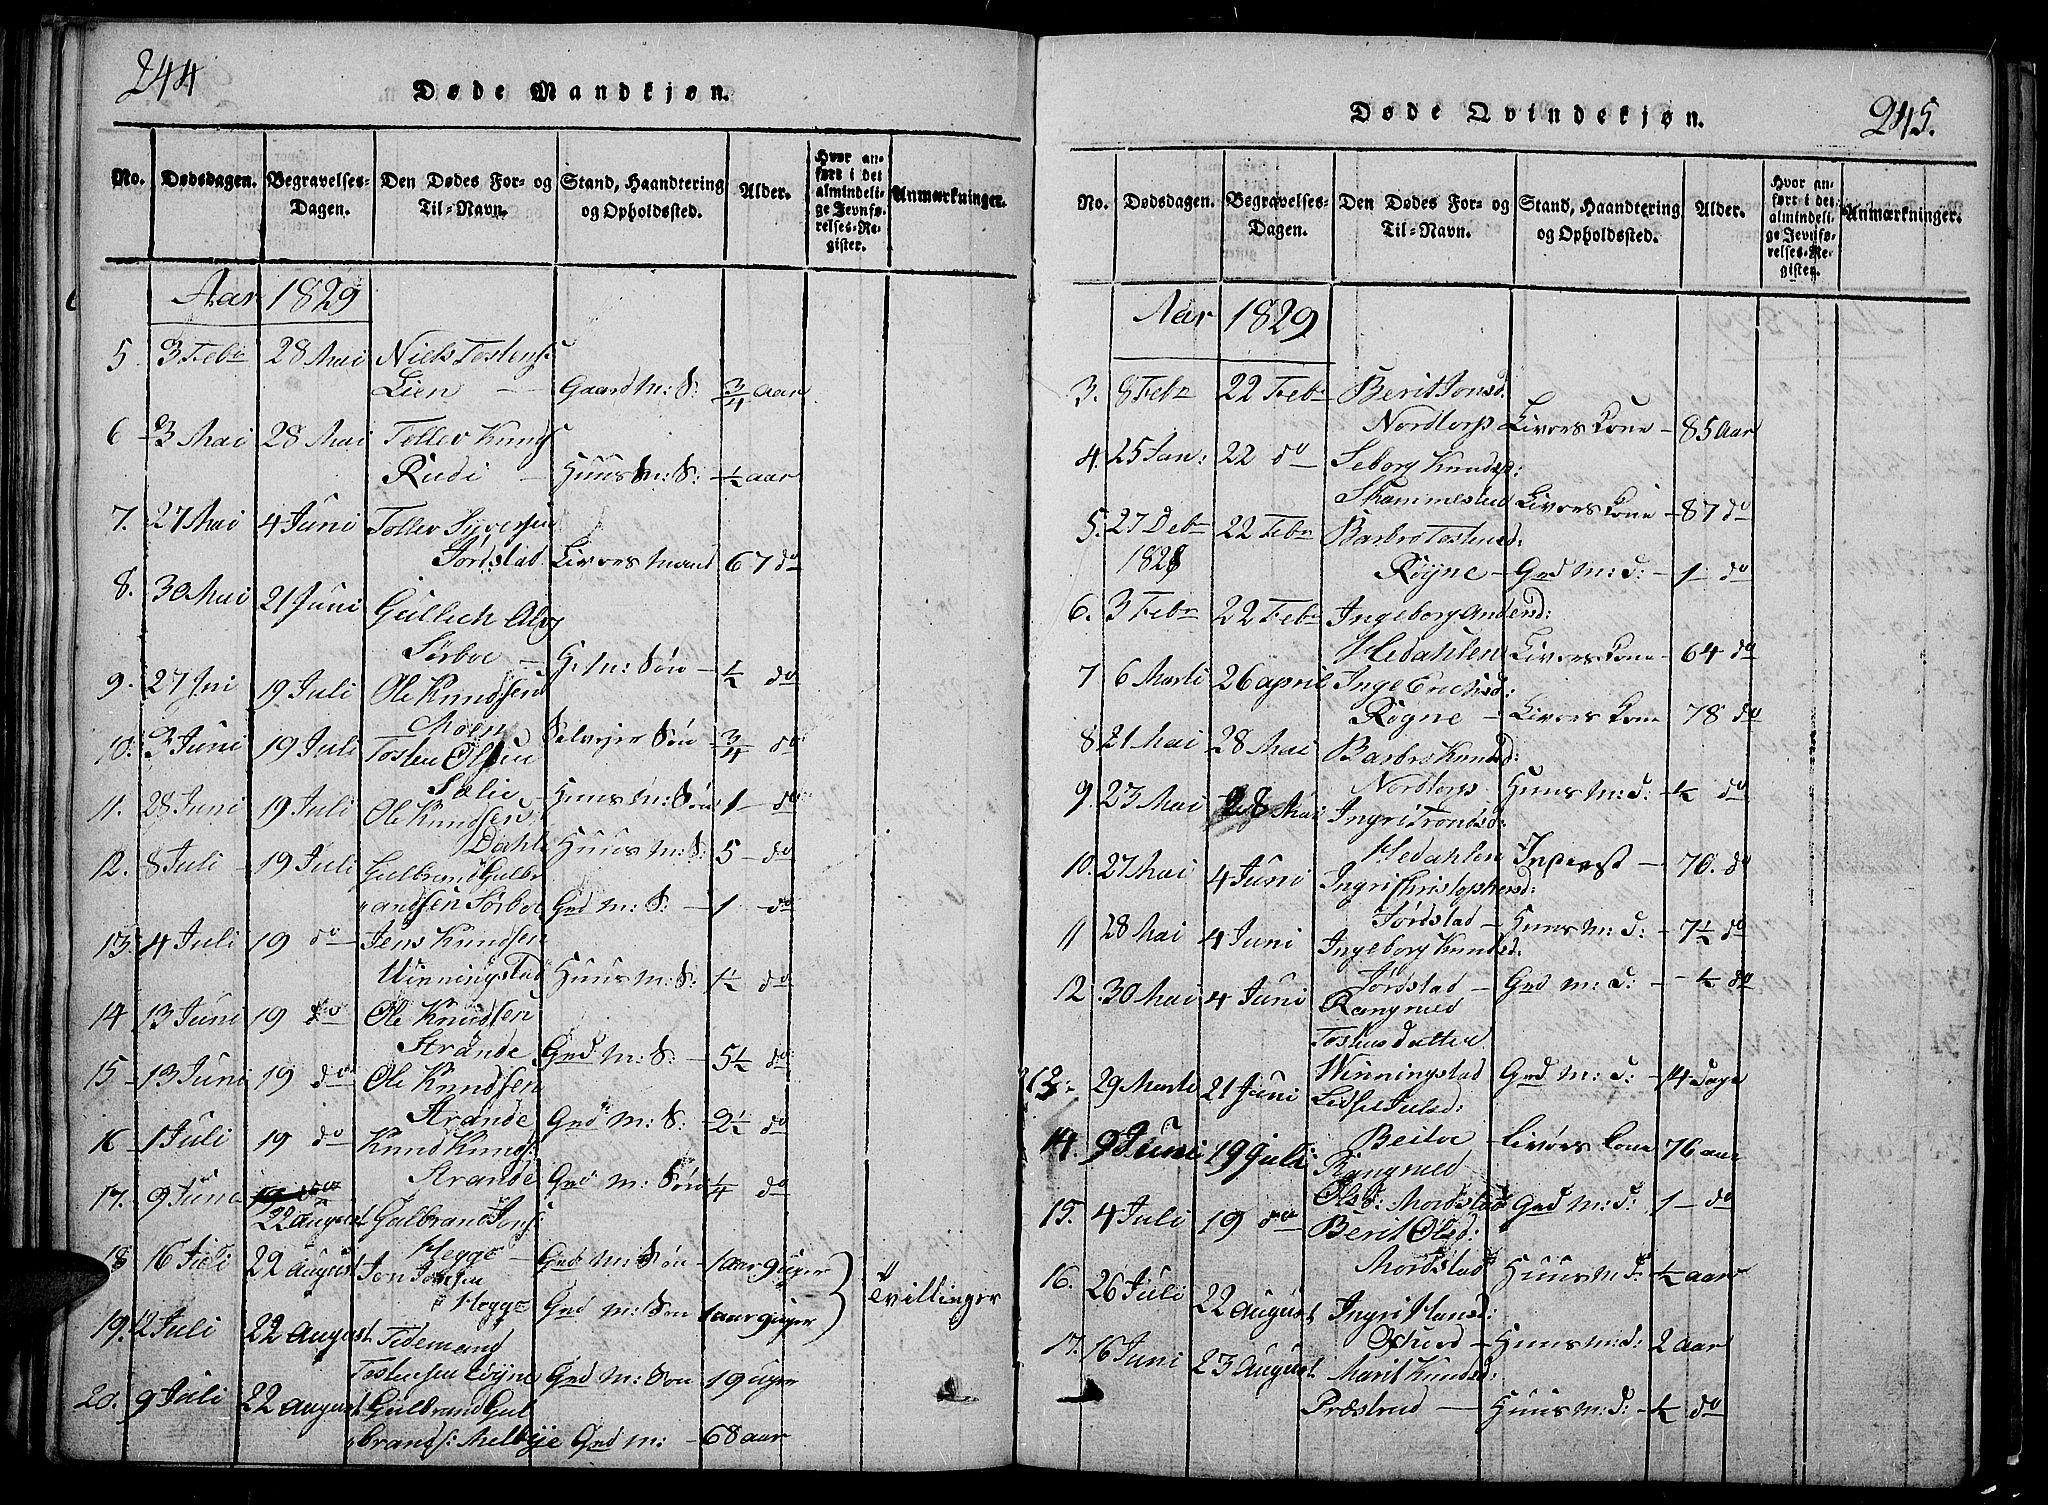 244
Døde Mandkjøn.
No. Dødsdagen. Begravelses-Dagen. Den Dødes For- og Til-Navn. Stand, Haandtering og Opholdssted. Alder. Hvor anført i det almindelige Jevnførelses-Register. Anmærkninger.
Aar 1829
5. 3 Febr 28 Mai Niels Tostens:
Lien — Gaardm: S: 3/4 aar
6 3 Mai 28 Mai Toller Knuds
Rudi — Huusm: S: ½ aar
7. 27 Mai 4 Juni Toller Syversen
Jørdstad Livøresmand 67 do
8. 30 Mai 21 Juni Gullich
Sørboe — H: m: Søn — ½ do
9. 27 19 Juli Ole Knudsen
Moen Selvejer Søn — 3/4 do
10. 3 Juni 19 Juli Tosten Olsen
Sælie — Huusm: Søn 1 — do
11. 28 Juni 19 Juli Ole Knudsen
Dahl Huusm: S: 5 — do
12. 8 Juli — 19 Juli Gulbrand Gulbr
andsen Sørboe Grd m: S: — 1 do
13. 4 Juli 19 do — Jens Knudsen
Winningstad Huusm: S: — 1½ do
14 13 Juni 19 do Ole Knudsen
Strande Grd m: S: — 5½ do
15 — 13 Juni 19 do Ole Knudsen
Strande — Grd m: S: — 2½ do
16 — 1 Juli 19 do Knud Knuds:
Strande — Grd m: Søn ¼ do
17. 9 Juni 19 do
22 August Gulbrand Jons:
Hegge — Grd m: Søn — 1 aar 9 uger
18 16 Juli 22 August Jon Jonsen
Hegge Grd m: Søn 1 aar 9 uger } Tvillinger
19. 12 Juli 22 August Tidemand
Tostensen Røyne Grd m: Søn 19 uger
20. 9 Juli 22 August Gulbrand Gul
brands: Melbye Grd m: — 68 aar
245.
Døde Qvindekjøn.
No. Dødsdagen. Begravelses-Dagen. Den Dødes For- og Til-Navn. Stand, Haandtering og Opholdssted. Alder. Hvor anført i det almindelige Jevnførelses-Register. Anmærkninger.
Aar 1829
3. 8 Febr 22 Febr Berit Jonsd.
Nordtorp Livørs Kone — 85 Aar
4. 25 Jan: 22 do — Seborg Knudsd:
Skammestad Livørs Kone — 87 do
5. 27 Debr 22 Febr Barbro Tostensd:
1828 Røyne — Grd m: d: — 1 do
6. 3 Febr 22 Febr Ingeborg Andersd:
Hedahlen Livørs Kone — 64 do
7 6 Marti 26 april Inge Erichsd:
Røgne — Livørs Kone 78 do
8 21 Mai 28 Mai Barbro Knudsd:
Nordtorp Huusm: d: — ½ do
9. 23 Mai 28 Mai Ingri Trondsd:
Hedahlen — 70. do
10. 27 Mai 4 Juni Ingri Christophersd:
Jørdstad — Huusm: d: — 7½ do
11 28 Mai 4 Juni Ingeborg Knudsd:
Jørdstad — Grd m: d: — ½ do
12. 30 Mai 4 Juni Rangnied
Tostensdatter
Winningstad Grd m: d: — 14 dage
13: 29 Marti 21 Juni
Beitoe — Livørs Kone 76 aar
14. 9 Juni 19 Juli Rangnied
Olsd: Mordstad Grd m: d: 1 — do
15. 4 Juli 19 do Berit Olsd:
Mordstad Huusm: d: ½ aar
16. 26 Juli 22 August Ingri Hansd:
— Huusm: d: 2 aar
17. 16 Juni 23 August Marit Knudsd:
Præstrud — Huusm: d: ½ do